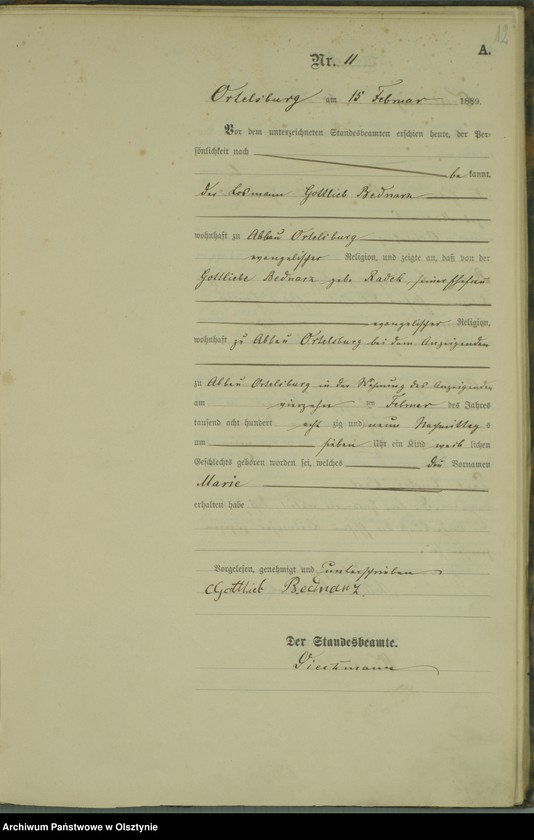 12
A.
Nr. 11
Ortelsburg am 15 Februar 1889.
Vor dem unterzeichneten Standesbeamten erschien heute, der Per-
sönlichkeit nach
be kannt,
der Losmann Gottlieb Bednarz
wohnhaft zu Abbau Ortelsburg
evangelischer Religion, und zeigte an, daß von der
Gottliebe Bednarz geb. Radek, seiner Ehefrau
evangelischer Religion,
wohnhaft zu Abbau Ortelsburg bei dem Anzeigenden
zu Abbau Ortelsburg in der Wohnung des Anzeigenden
am vierzehn ten Februar des Jahres
tausend acht hundert acht zig und neun Nachmittag s
um sieben Uhr ein Kind weib lichen
Geschlechts geboren worden sei, welches den Vornamen
Marie
erhalten habe
Vorgelesen, genehmigt und unterschrieben
Gottlieb Bednarz
Der Standesbeamte.
Archiwum Państwowe w Olsztynie